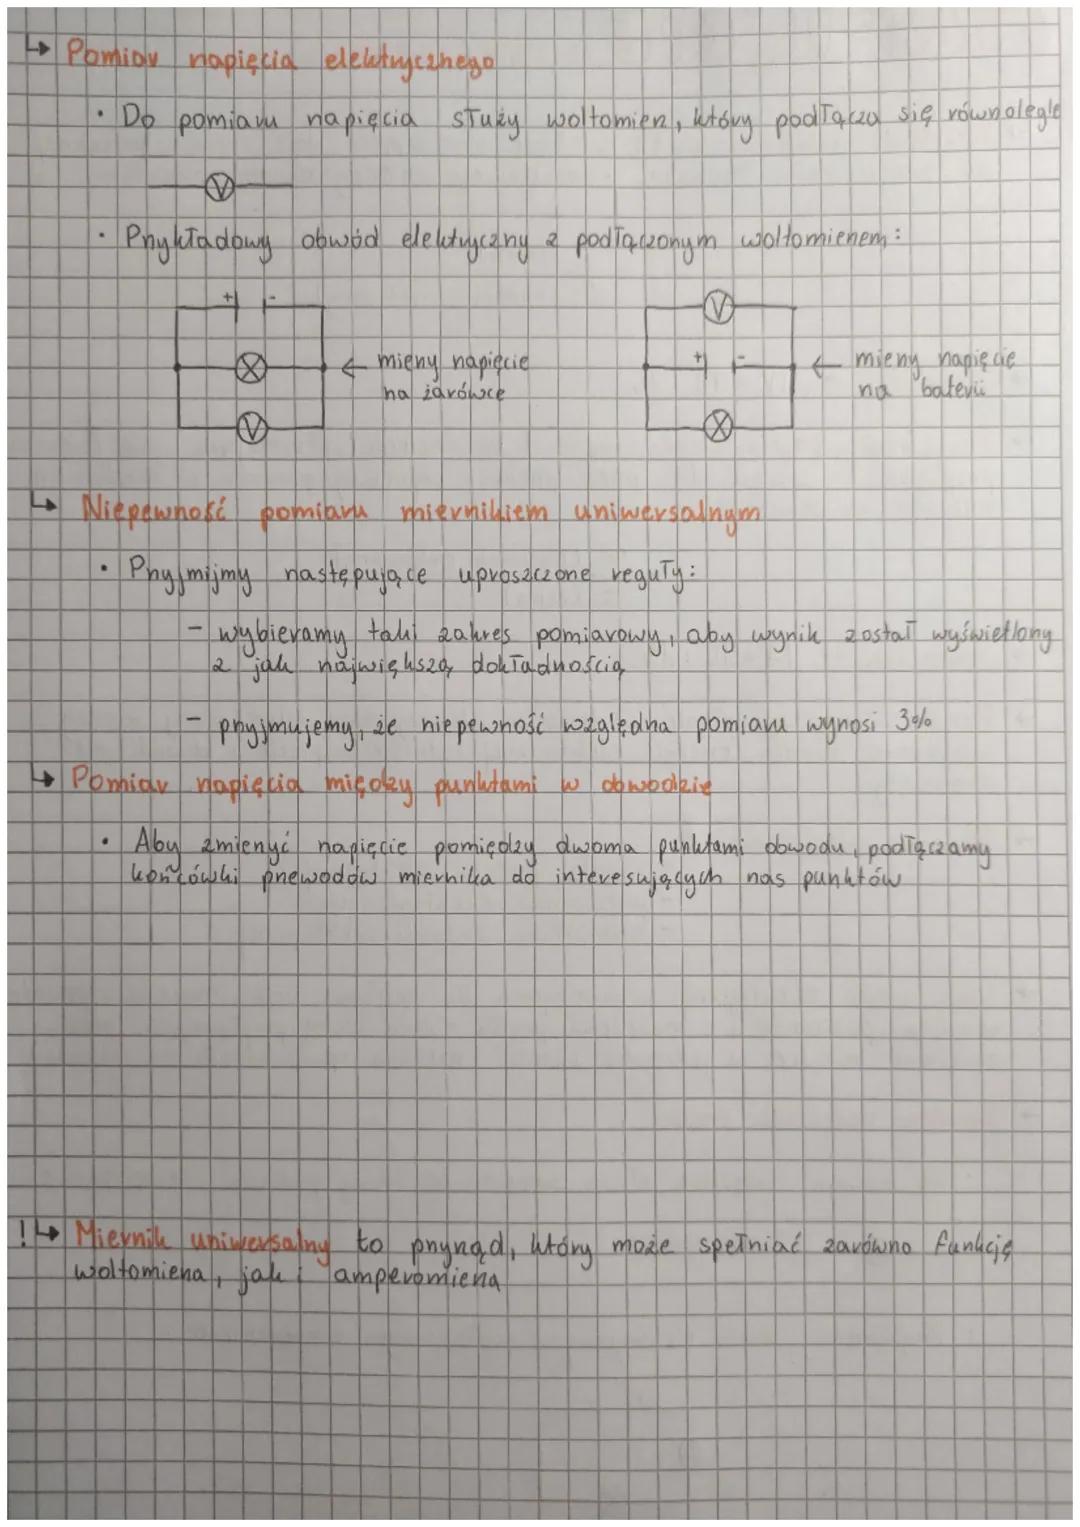 ↳ Pomiar napięcia elektrycznego
• Do pomiaru napięcia służy woltomierz, który podłącza się równolegle
V
• Przykładowy obwód elektryczny z podłączonym woltomierzem:
+ -
V
← mierzy napięcie
na żarówce
V
+ -
← mierzy napięcie
na baterii
↳ Niepewność pomiaru miernikiem uniwersalnym
• Przyjmijmy następujące uproszczone reguły:
- wybieramy taki zakres pomiarowy, aby wynik został wyświetlony
z jak największą dokładnością
- przyjmujemy, że niepewność względna pomiaru wynosi 3%
↳ Pomiar napięcia między punktami w obwodzie
• Aby zmierzyć napięcie pomiędzy dwoma punktami obwodu, podłączamy
końcówki przewodów miernika do interesujących nas punktów
! ↳ Miernik uniwersalny to przyrząd, który może spełniać zarówno funkcję
woltomierza, jak i amperomierza